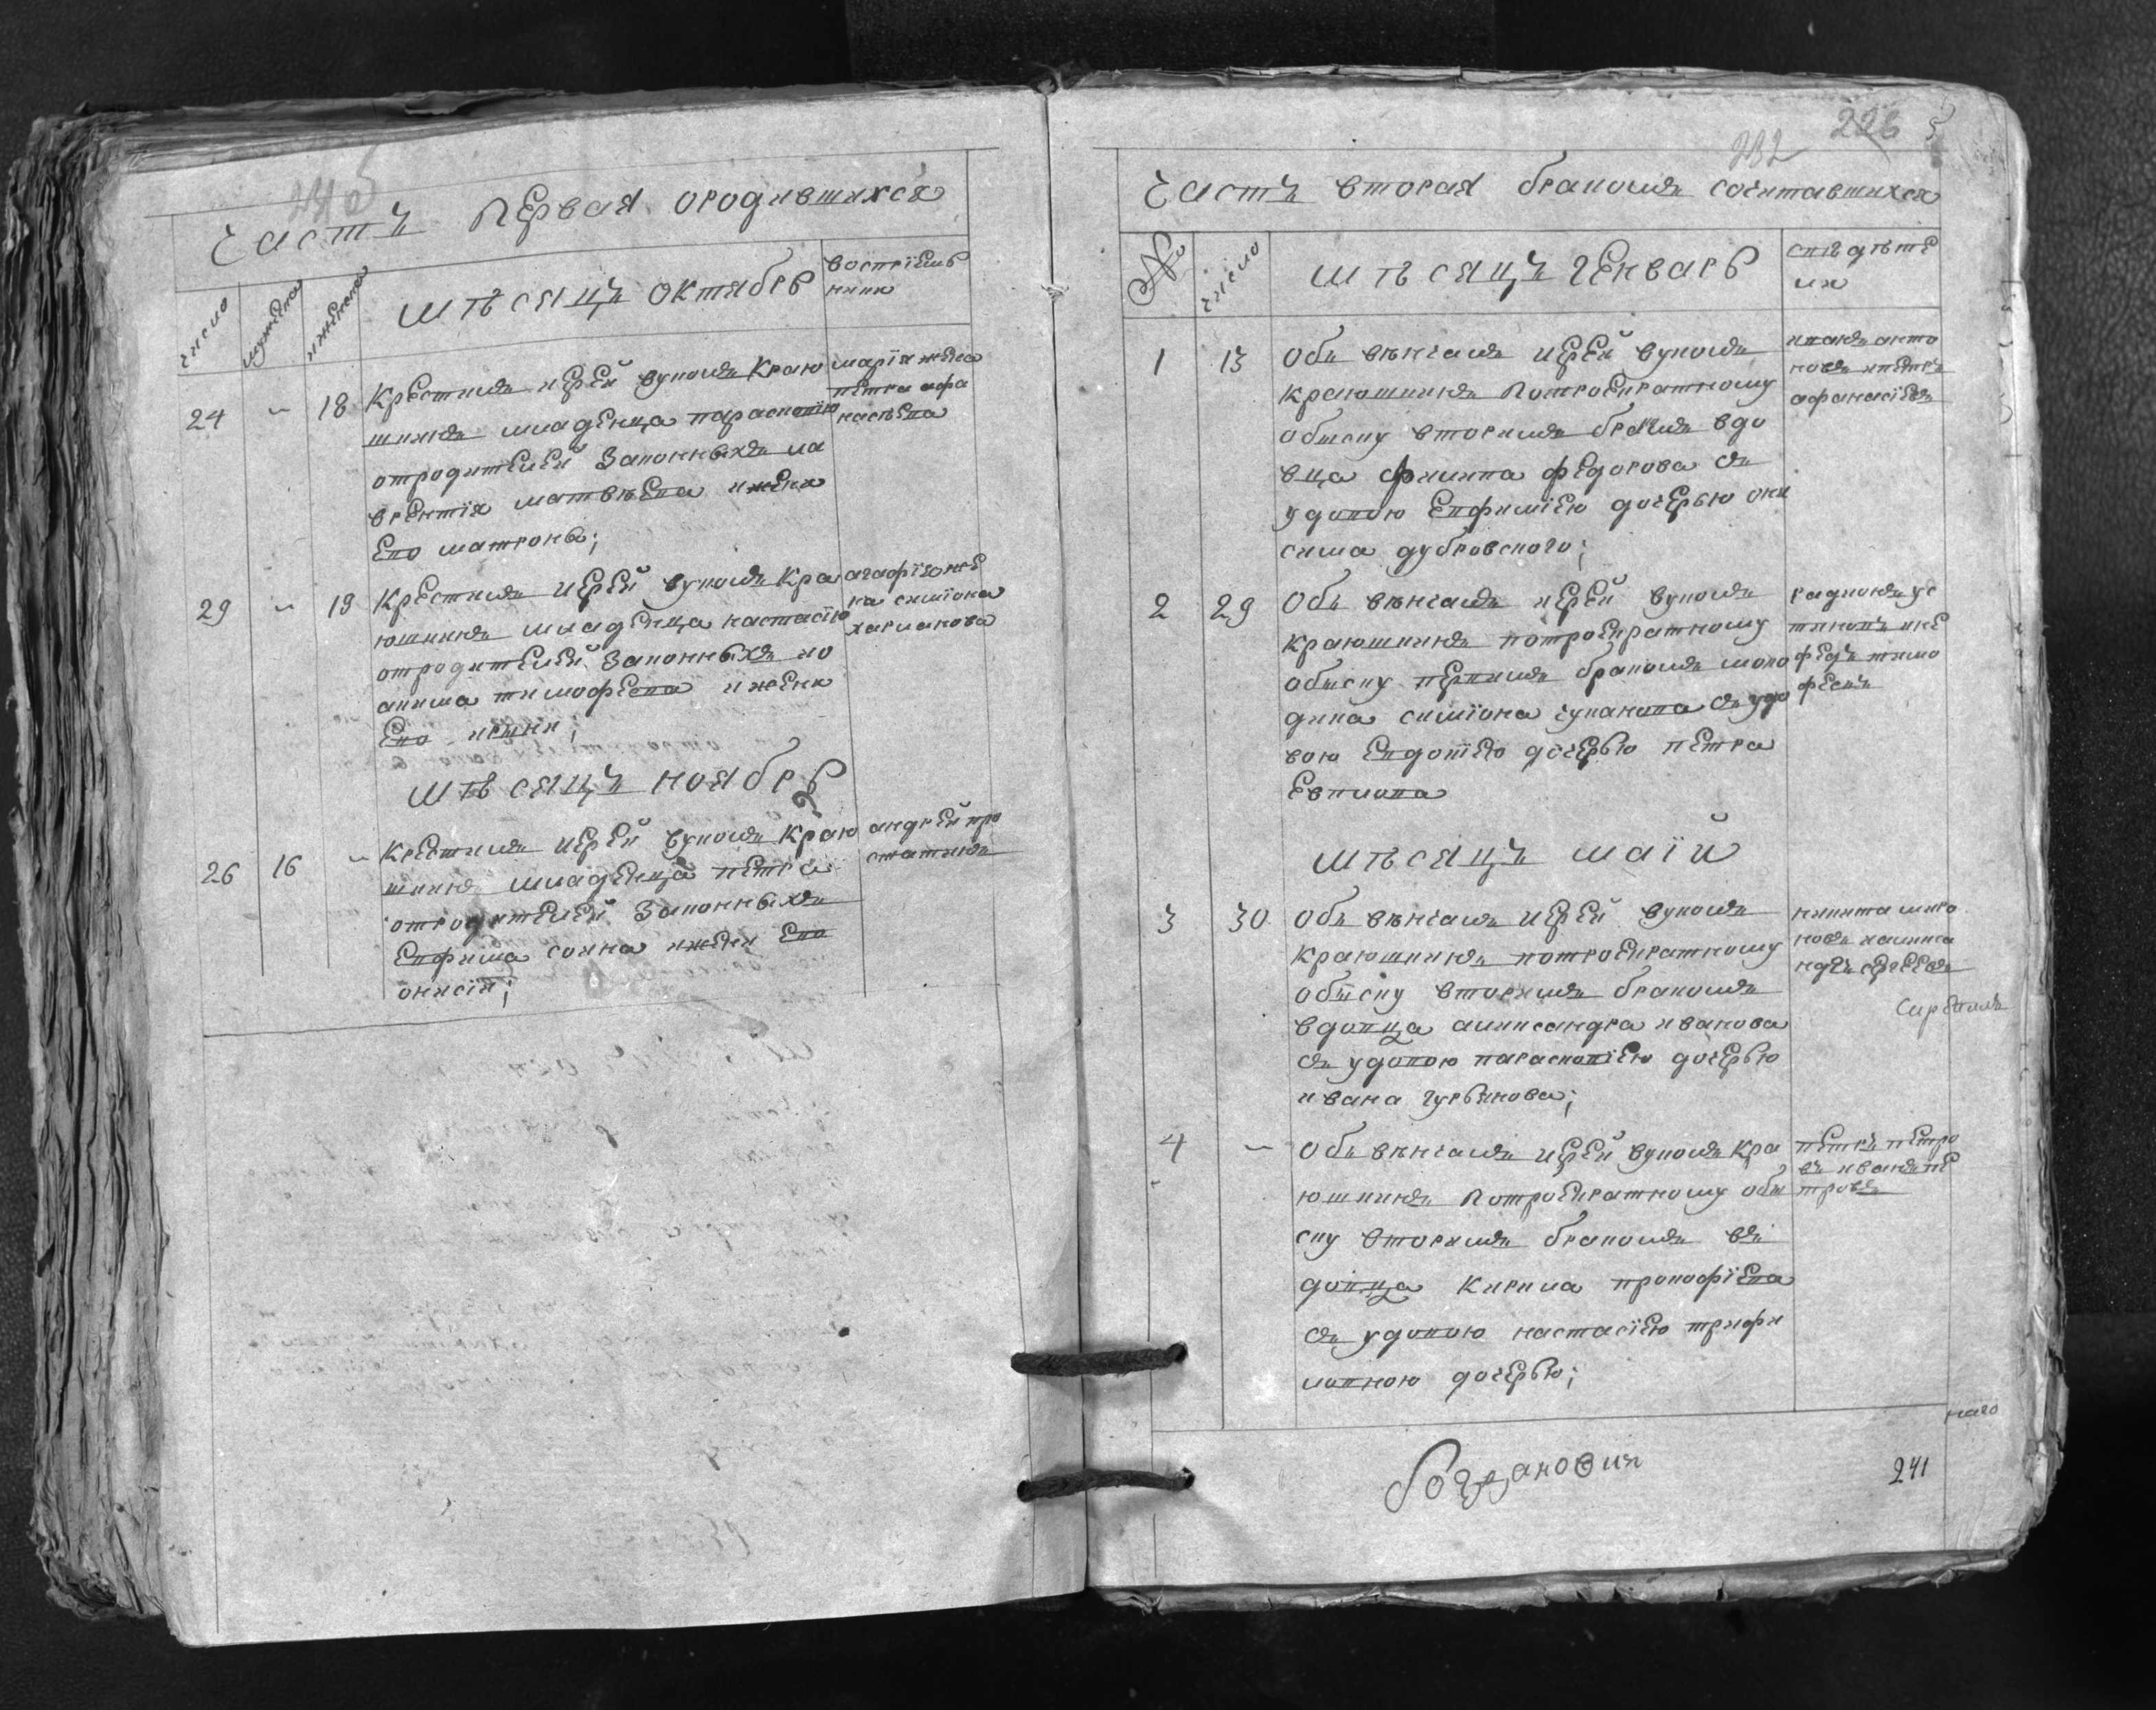 Частъ первая ородившихся
число
мужеска
иженска
мѣсяцъ октябрь
воспріемь
ники
24 18 крестилъ иерей вуколъ краю
шкинъ младенца параскопію
отродителей законныхъ ла
врентія матвѣева ижени
его матроны;
марія жена
петра афа
насьева
29 19 крестилъ иерей вуколъ кра
юшкинъ младенца настасію
отродителей законныхъ ио
акима тимофеева ижени
его ирини;
агафія же
на симіона
мѣсяцъ ноябрь
26 16 крестилъ иерей вуколъ краю
шкинъ младенца петра
отродителей законныхъ
евфима сонна ижени его
онисіи;
андрей про
226
232
Частъ вторая бракомъ сочитавшихся
№
число
мѣсяцъ генварь
свѣдѣте
ли
1 13 Объ вѣнчалъ иерей вуколъ
краюшкинъ потроекратному
обыску вторимъ бракомъ вдо
вца филипа федорова съ
удовою евфиміею дочерью они
сима дубровского;
иванъ анто
новъ ипетръ
афанасіевъ
2 29 Объ вѣнчалъ иерей вуколъ
краюшкинъ потроекратному
обыску первимъ бракомъ моло
дика симіона съ удо
вою евдотіею дочерью петра
радионъ ус
тиновъ ине
федъ тимо
феевъ
мѣсяцъ маій
3 30 Объ вѣнчалъ иерей вуколъ
краюшкинъ потроекратному
обыску вторимъ бракомъ
вдовца алиисандра иванова
съ удовою параскопіею дочерью
ивана гурьянова;
никита миро
новъ
4 Объ вѣнчалъ иерей вуколъ кра
юшкинъ потроекратному обы
ску вторимъ бракомъ въ
довца кирила прокофіева
съ удовою настасіею трифи
ловною дочерью;
петръ петро
въ иванъ пе
тровъ
Богданович
241